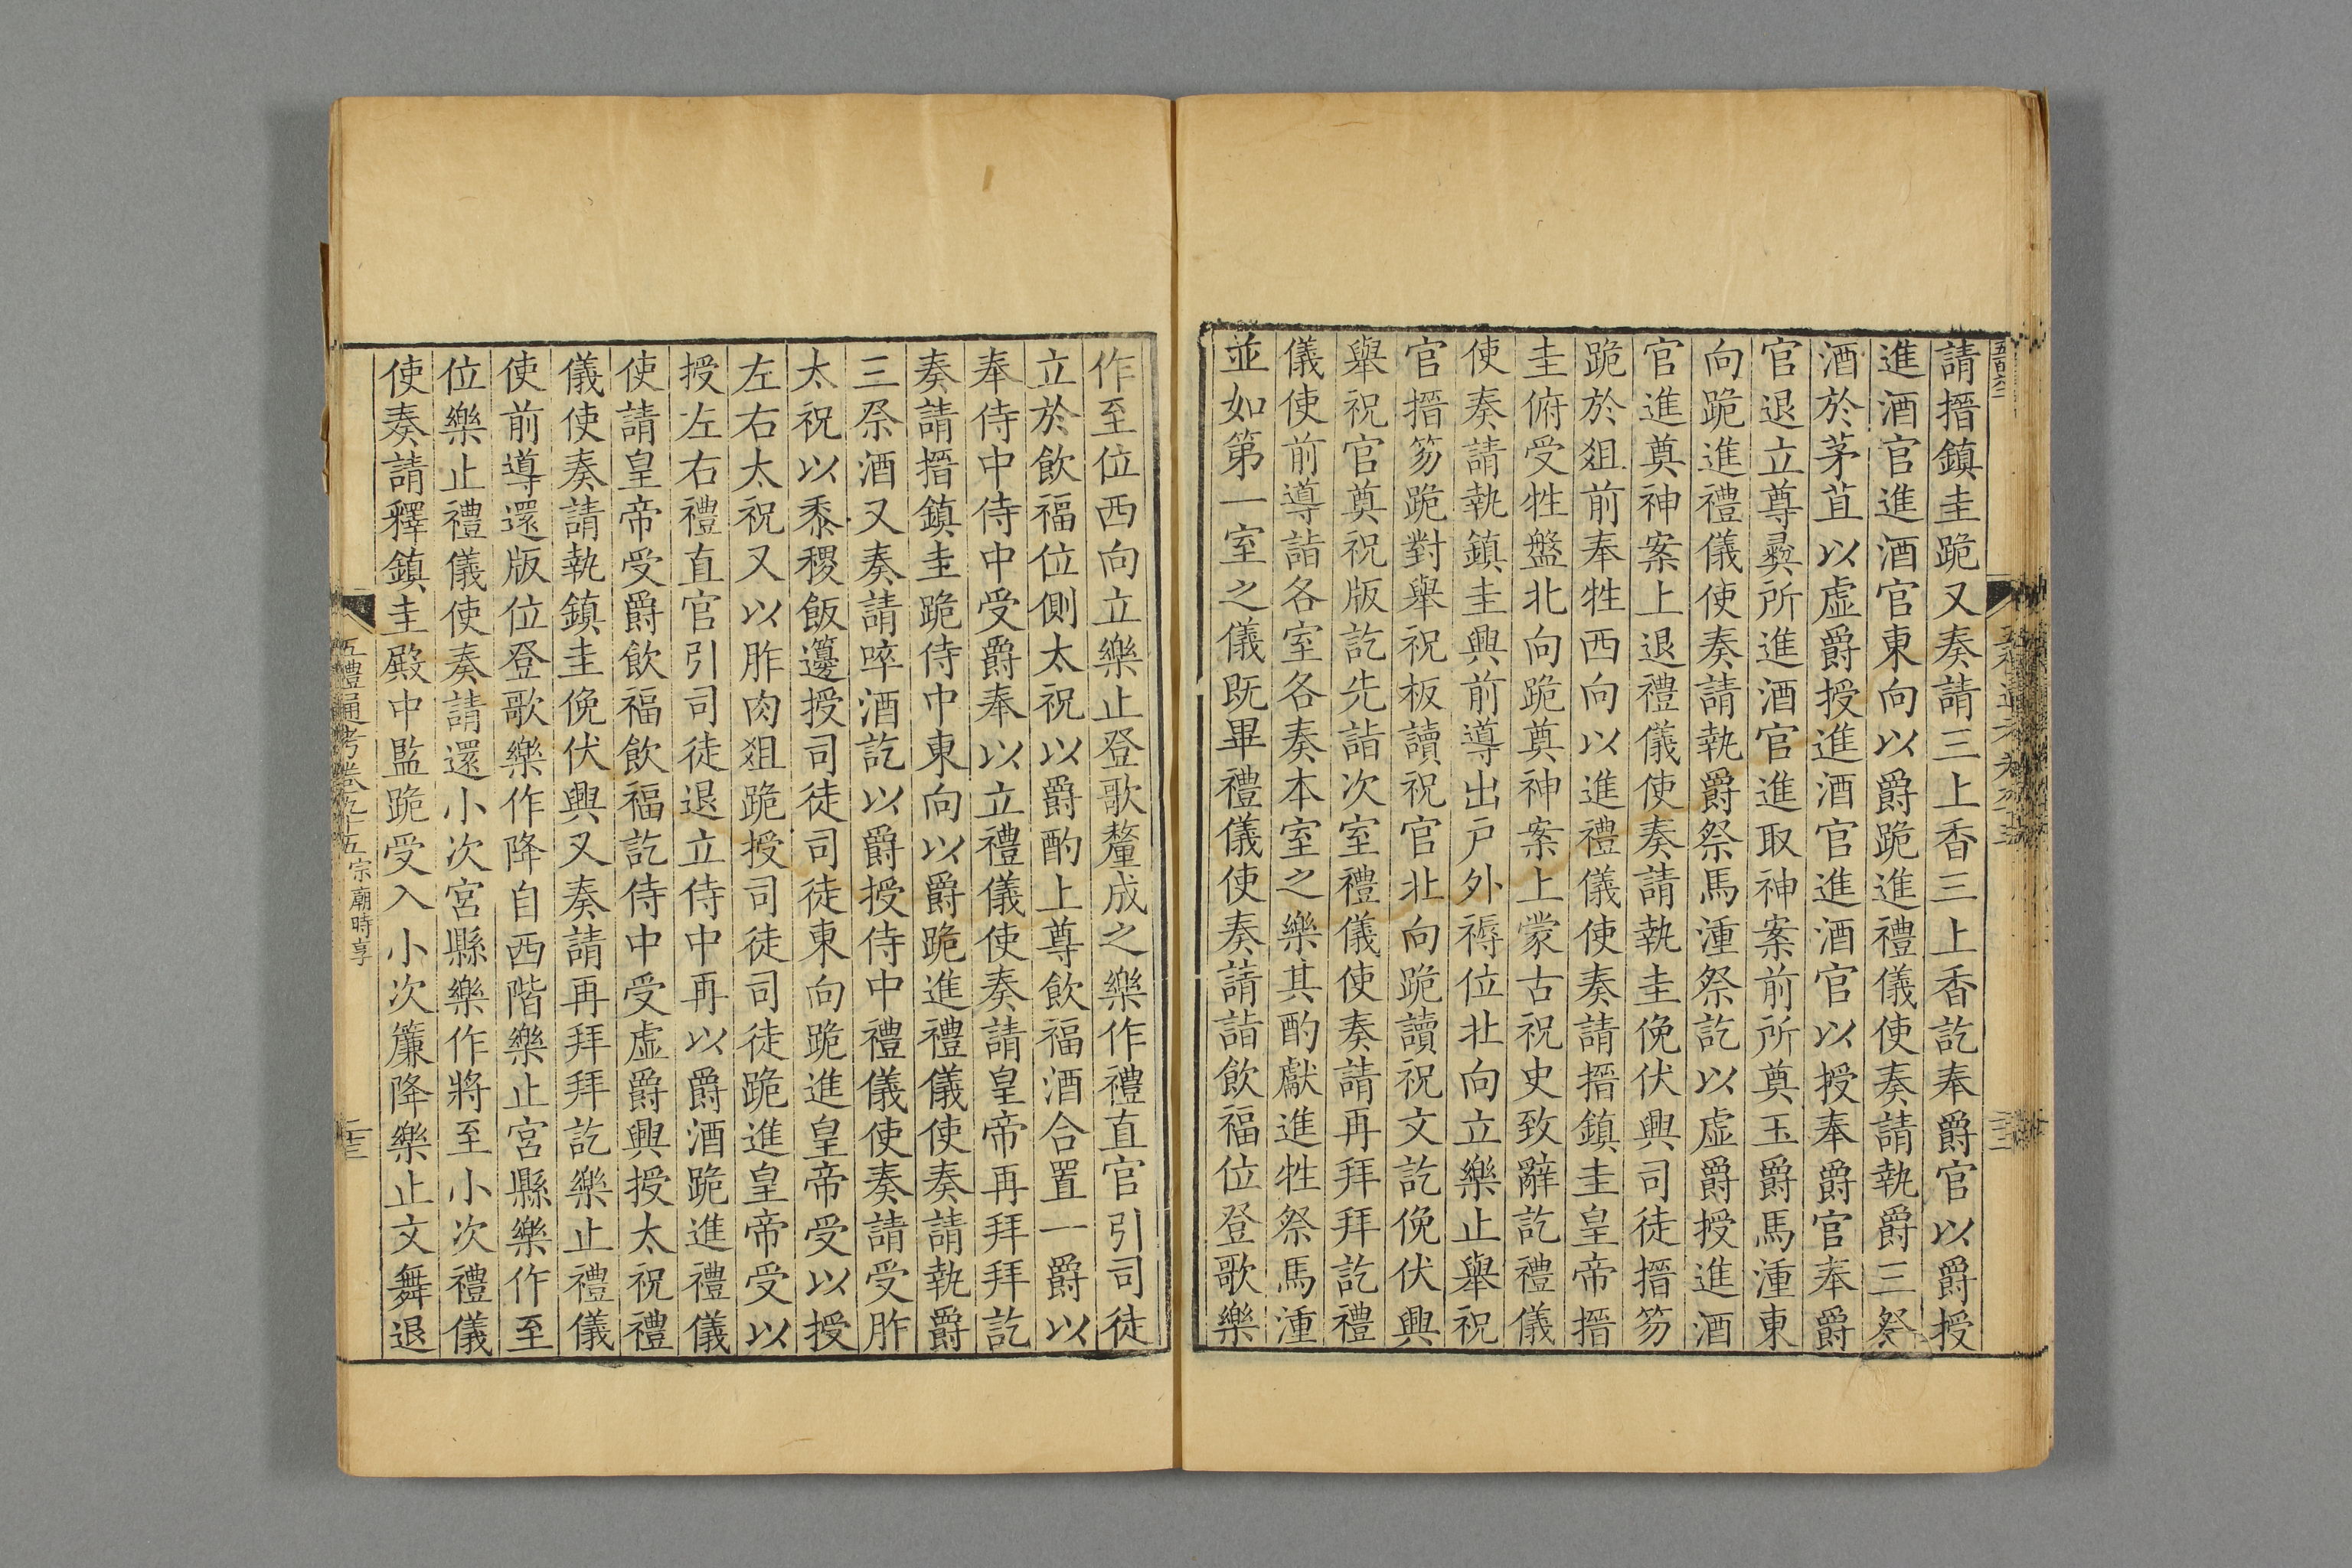 請搢鎮圭跪又奏請三上香三上香訖奉爵官以爵授
進酒官進酒官東向以爵跪進禮儀使奏請執爵三祭
酒於茅苴以虛爵授進酒官進酒官以授奉爵官奉爵
官退立尊彞所進酒官進取神案前所奠玉爵馬湩東
向跪進禮儀使奏請執爵祭馬湩祭訖以虛爵授進酒
官進奠神案上退禮儀使奏請執圭俛伏興司徒搢笏
跪於俎前奉牲西向以進禮儀使奏請搢鎮圭皇帝搢
圭俯受牲盤北向跪奠神案上蒙古祝史致辭訖禮儀
使奏請執鎮圭興前導出戶外褥位北向立樂止舉祝
官搢笏跪對舉祝板讀祝官北向跪讀祝文訖俛伏興
舉祝官奠祝版訖先詣次室禮儀使奏請再拜拜訖禮
儀使前導詣各室各奏本室之樂其酌獻進牲祭馬湩
並如第一室之儀既畢禮儀使奏請詣飲福位登歌樂
作至位西向立樂止登歌釐成之樂作禮直官引司徒
立於飲福位側太祝以爵酌上尊飲福酒合置一爵以
奉侍中侍中受爵奉以立禮儀使奏請皇帝再拜拜訖
奏請搢鎮圭跪侍中東向以爵跪進禮儀使奏請執爵
三祭酒又奏請啐酒訖以爵授侍中禮儀使奏請受胙
太祝以黍稷飯籩授司徒司徒東向跪進皇帝受以授
左右太祝又以胙肉俎跪授司徒司徒跪進皇帝受以
授左右禮直官引司徒退立侍中再以爵酒跪進禮儀
使奏請皇帝受爵飲福飲福訖侍中受虛爵興授太祝禮
儀使奏請執鎮圭俛伏興又奏請再拜拜訖樂止禮儀
使前導還版位登歌樂作降自西階樂止宮縣樂作至
位樂止禮儀使奏請還小次宮縣樂作將至小次禮儀
使奏請釋鎮圭殿中監跪受入小次簾降樂止文舞退
五禮通考卷九十五宗廟時享
二十三